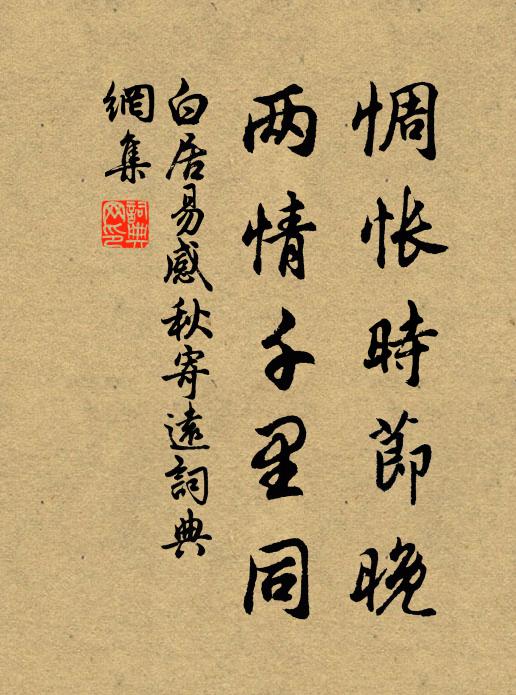 惆怅時節晚
两情千里同
白居易感秋寄遠詞典
網集
詞典
网印